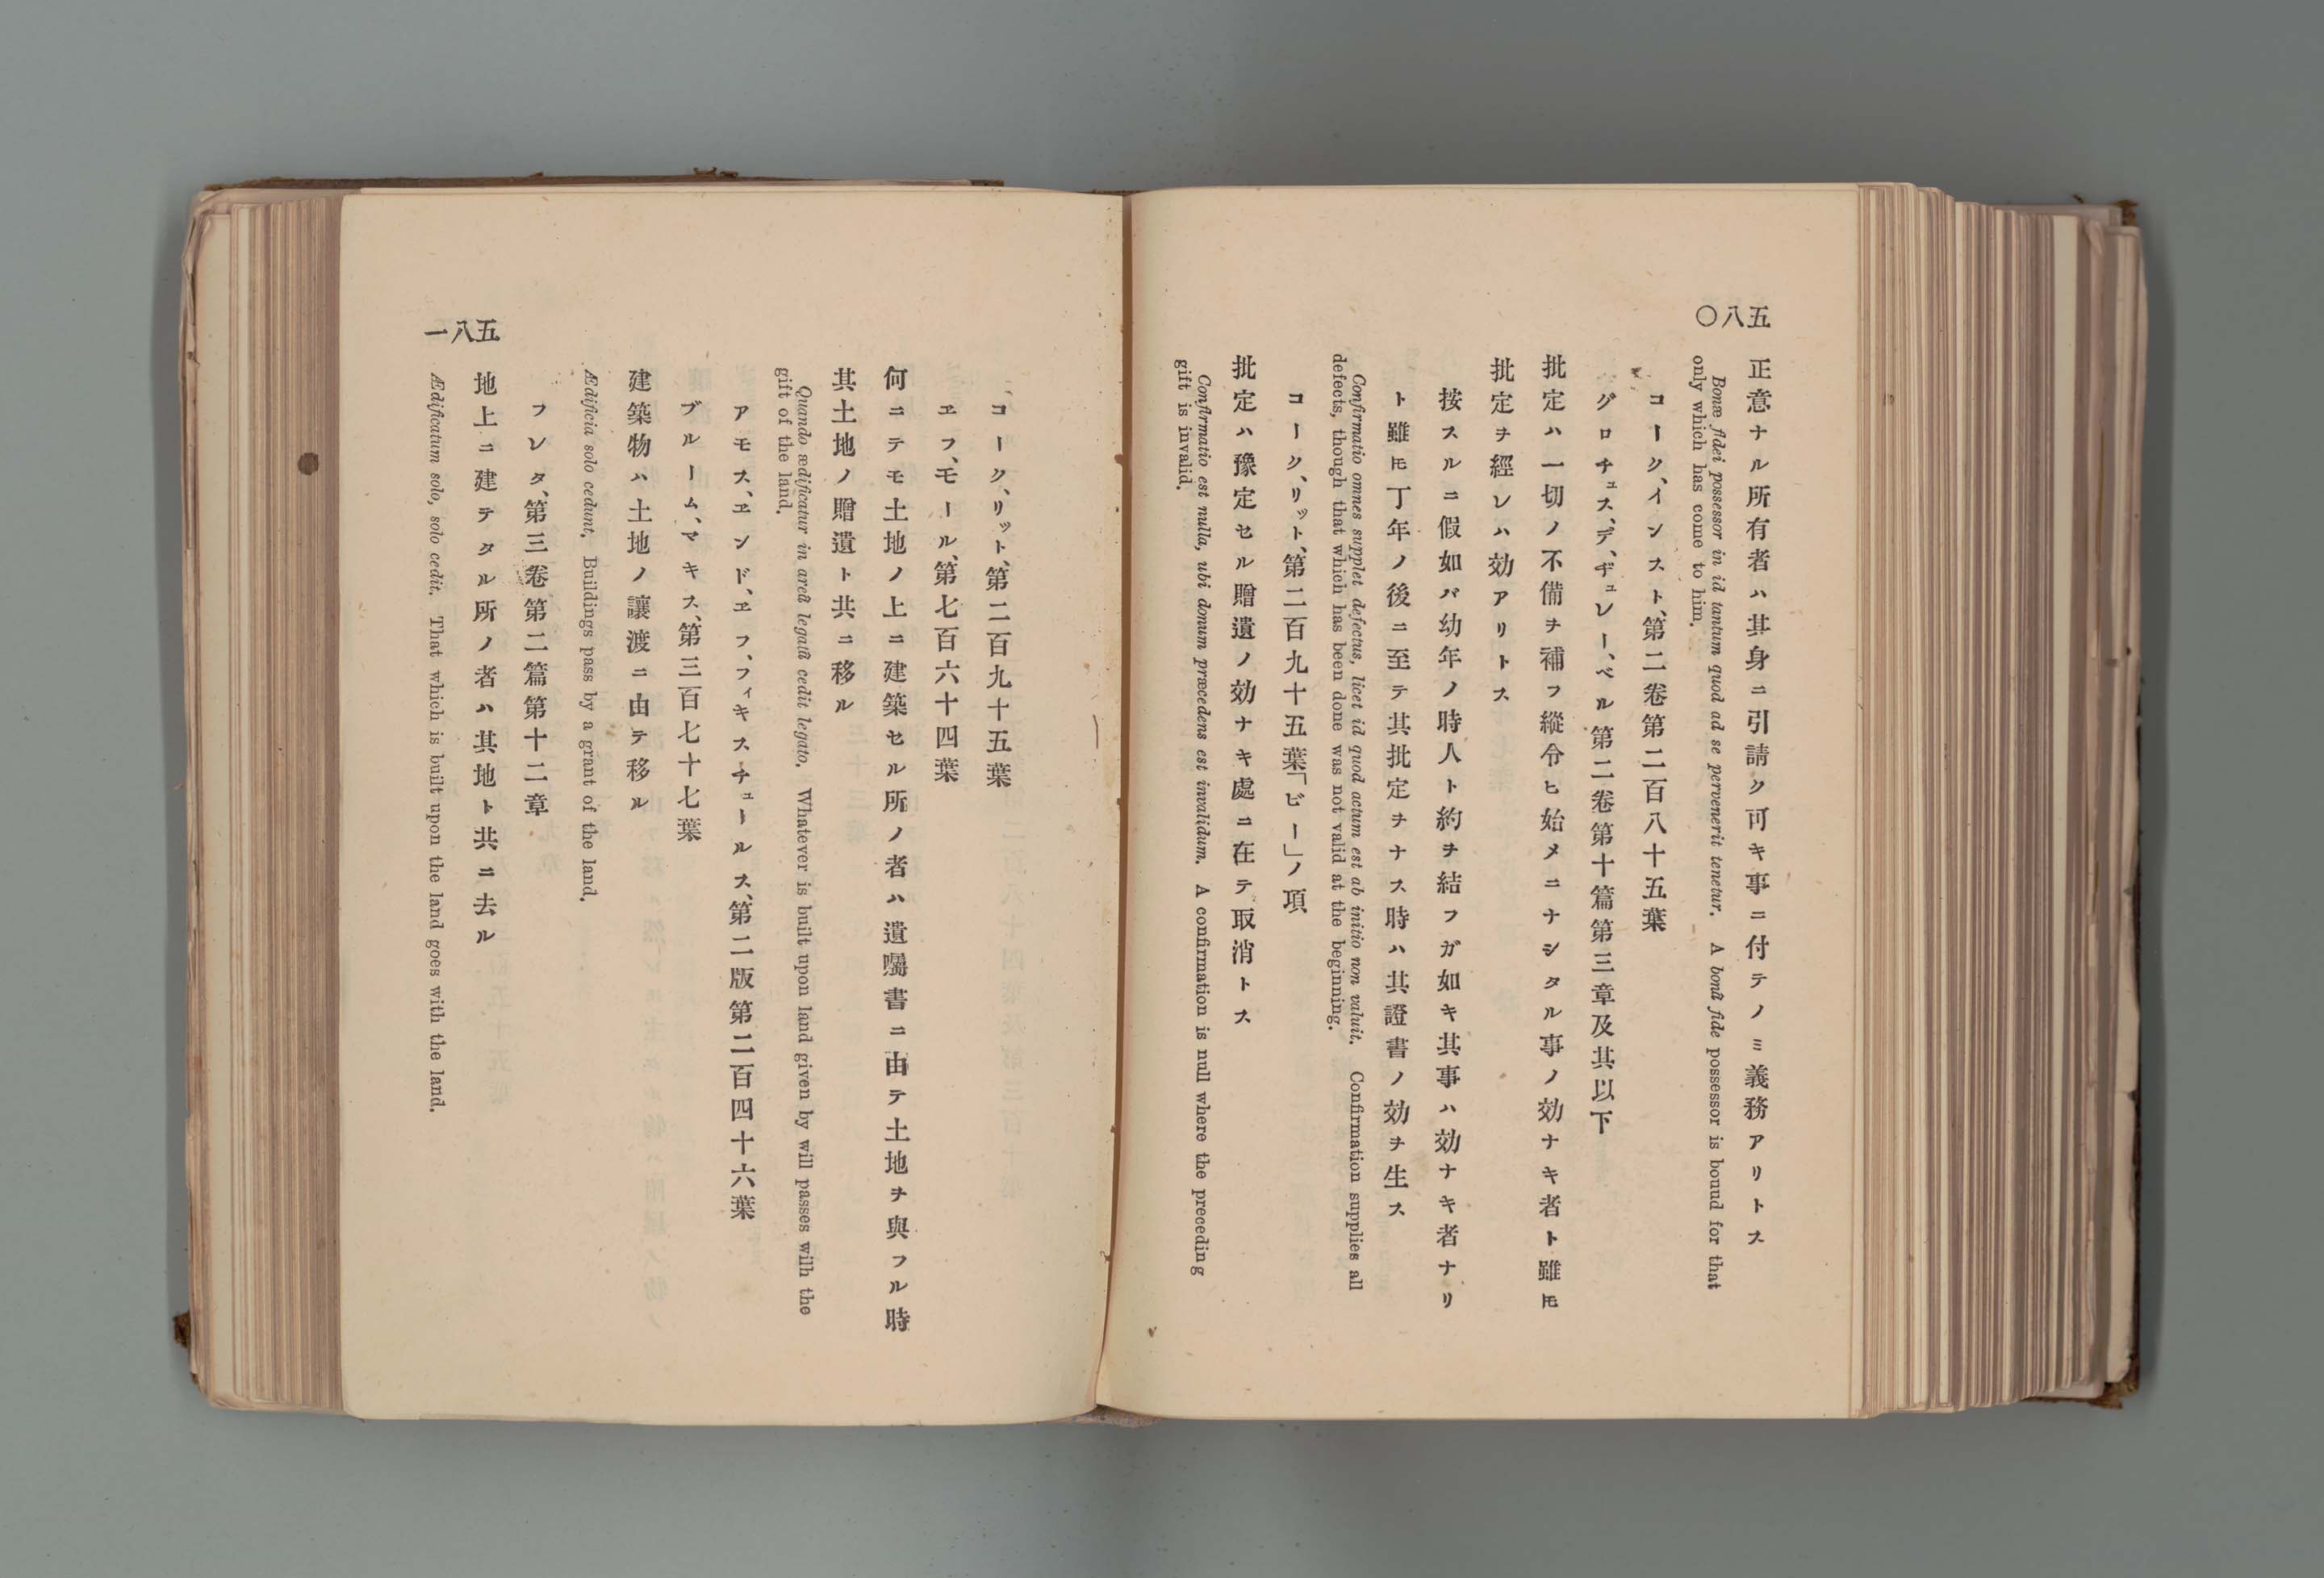 五八〇
正意ナル所有者ハ其身ニ引請ク可キ事ニ付テノミ義務アリトス
Bonæ fidei possessor in id tantum quod ad se pervenerit tenetur. A bonâ fide possessor is bound for that
only which has come to him.
コーク、インスト、第二卷第二百八十五葉
グロチュス、デ、ヂュレー、ベル第二卷第十篇第三章及其以下
批定ハ一切ノ不備ヲ補フ縱令ヒ始メニナシタル事ノ効ナキ者ト雖𪜈
批定ヲ經レハ効アリトス
按スルニ假如バ幼年ノ時人ト約ヲ結フガ如キ其事ハ効ナキ者ナリ
ト雖𪜈丁年ノ後ニ至テ其批定ヲナス時ハ其證書ノ効ヲ生ス
Confirmatio omnes supplet defectus, licet id quod actum est ab initio non valuit. Confirmation supplies all
defects, though that which has been done was not valid at the beginning.
コーク、リット、第二百九十五葉「ビー」ノ項
批定ハ豫定セル贈遺ノ効ナキ處ニ在テ取消トス
Confirmatio est nulla, ubi donum præcedens est invalidum. A confirmation is null where the preceding
gift is invalid.
コーク、リット、第二百九十五葉
ヱフ、モール、第七百六十四葉
何ニテモ土地ノ上ニ建築セル所ノ者ハ遺囑書ニ由テ土地ヲ與フル時
其土地ノ贈遺ト共ニ移ル
Quando ædificatur in areâ legatâ cedit legato. Whatever is built upon land given by will passes wilh the
gift of the land.
アモス、ヱンド、ヱフ、フィキスチュールス、第二版第二百四十六葉
ブルーム、マキス、第三百七十七葉
建築物ハ土地ノ讓渡ニ由テ移ル
Ædificia solo cedunt. Buildings pass by a grant of the land.
フレタ、第三卷第二篇第十二章
地上ニ建テタル所ノ者ハ其地ト共ニ去ル
Ædificatum solo, solo cedit. That which is built upon the land goes with the land.
五八一